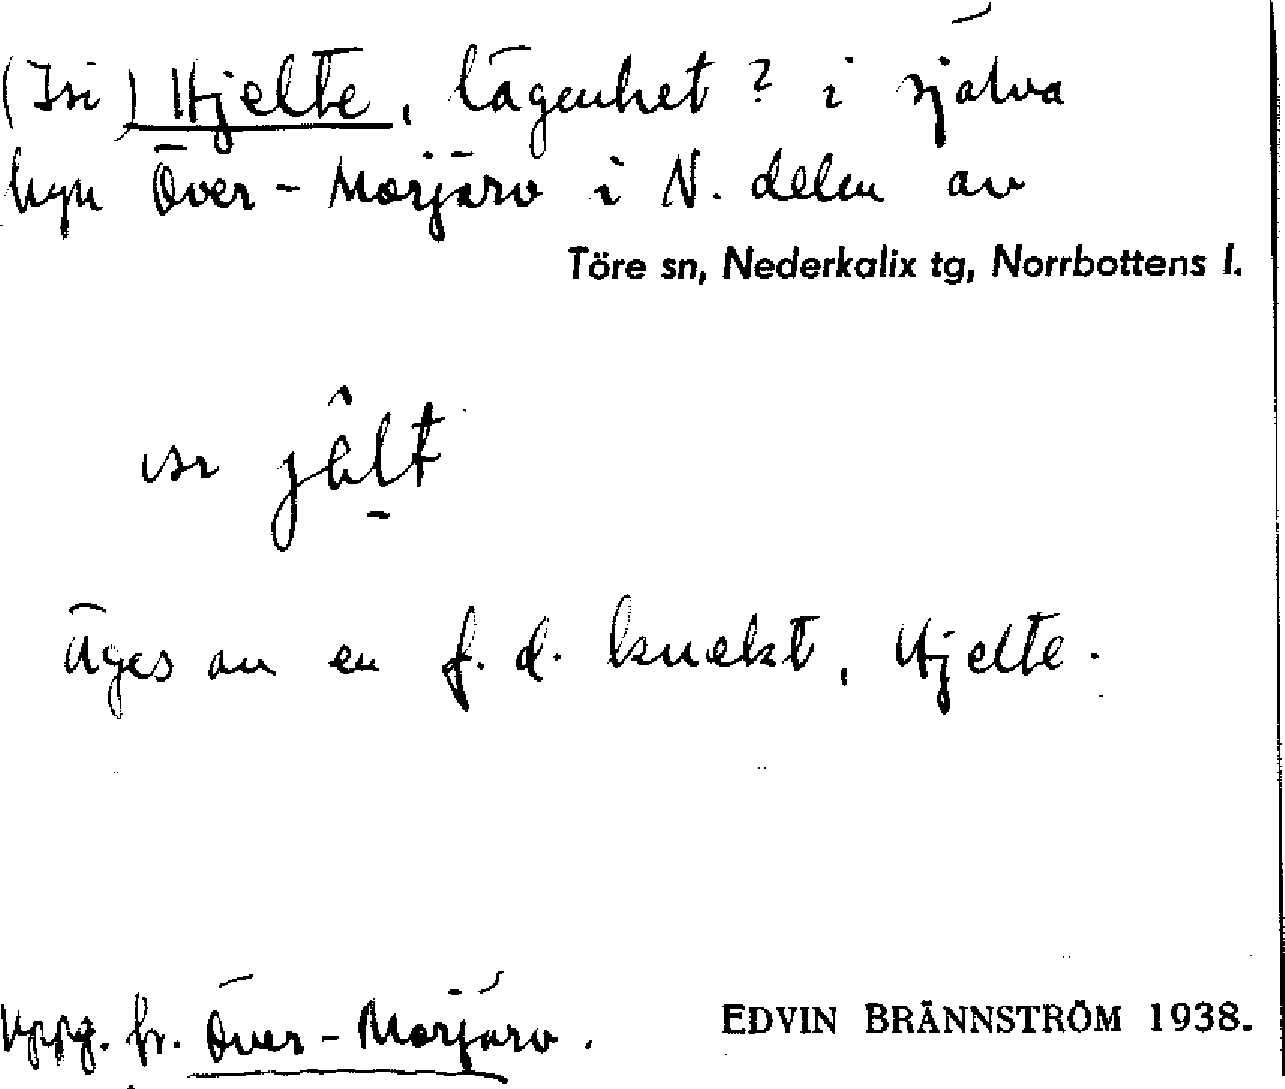 (Isi) Hjelte, lägenhet? i själva
byn Över-Morjärv i N. delen av
Töre sn, Nederkalix tg, Norrbottens l.
isi
Äges av en f. d. knekt, Hjelte.
Uppg. fr. Över-Morjärv.
EDVIN BRÄNNSTRÖM 1938.